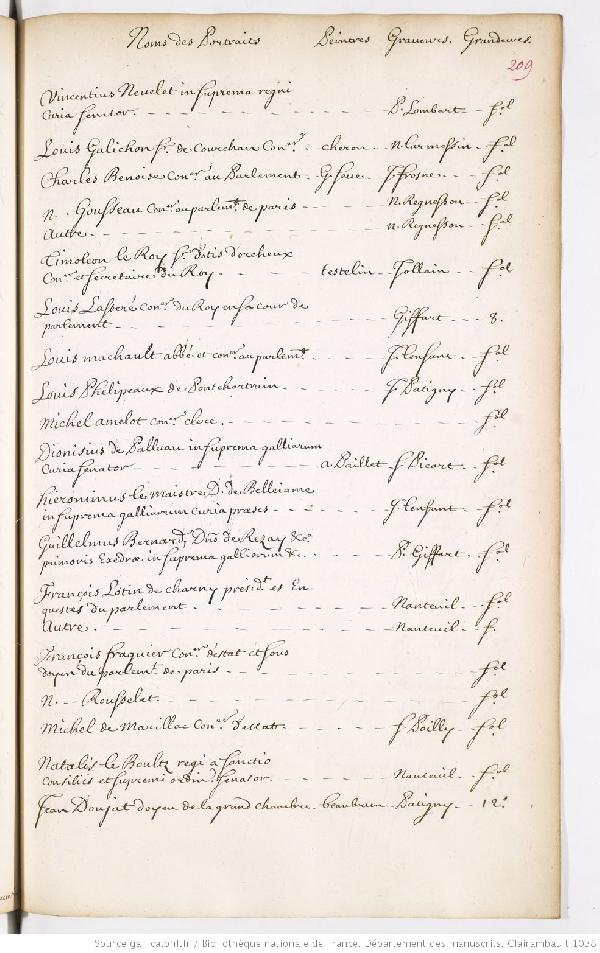 Noms des Portraits Peintres Graveurs. Grandeurs.
209
Vincentius Nevelet in suprema regni
Curia senator. P. Lombart fol
Louis Galichon Sr. de Courchan Conr. cheron N. Larmessin fol
Charles Benoise Conr. au Parlement J. Frosne fol
N. Gousseau Conr. au parlemt. de paris N. Regnesson fol
Autre. N. Regnesson fol
Timoleon le Roy Sr.
Conr. et Secretaire du Roy testelin Jollain fol
Louis Lasseré Conr. du Roy en sa cour de
parlement Giffart 8.
Louis machault abbé et conr. au parlemt. J. Lenfant fol
Louis Phelipeaux de Pontchartrain J. Patigny fol
Michel amelot conr. clerc. fol
Dionisius de Palluau in suprema galliarum
Curia senator a Paillet S. Picart fol
hieronimus le maistre D. de Bellejame
in suprema galliarum curia præses J. Lenfant fol
Guillelmus Bernard, Dns de Rezay &c
primoris Exedræ in suprema galliarum &c. P. Giffart fol
François Lotin de charny présidt. es En
questes du parlement Nanteuil fol
Autre. Nanteuil f.
François fraguier Conr. d'estat et sous
doyen du parlemt. de paris fol
N. Rousselet. fol
Michel de Marillac Conr. d'estat f Poilly fol
Natalis le Boultz regi a sanctio
consiliis et supremi ordin. senator. Nanteuil fol
Jean Doujat doyen de la grand chambre beaubrun Patigny 12.
Source gallica.bnf.fr / Bibliothèque nationale de France. Département des manuscrits. Clairambault 1038